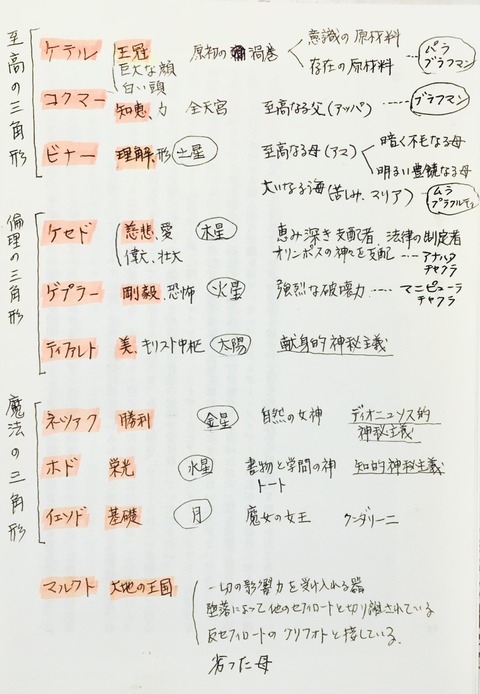 至高の三角形
ケテル 王冠 原初の渦巻 意識の原材料 パラブラフマン
巨大な顔 存在の原材料
白い頭
コクマー 知恵、力 全天宮 至高なる父(アッパ) ブラフマン
ビナー 理解、形 土星 至高なる母(アマ) 暗く不毛なる母
明るい豊饒なる母
大いなる海(苦しみ、マリア) ムラプラクルティ
倫理の三角形
ケセド 慈悲、愛 木星 恵み深き支配者、法律の制定者
偉大、壮大 オリンポスの神々を支配 アナハタチャクラ
ゲブラー 剛毅、恐怖 火星 強烈な破壊力 マニピューラチャクラ
ティファレト 美、キリスト中枢 太陽 献身的神秘主義
魔法の三角形
ネツァク 勝利 金星 自然の女神 ディオニュソス的神秘主義
ホド 栄光 水星 書物と学問の神トート 知的神秘主義
イェソド 基礎 月 魔女の女王 クンダリーニ
マルクト 大地の王国 一切の影響力を受け入れる器
堕落によって他のセフィロートと切り離されている
反セフィロートのクリフォトと接している。
劣った母